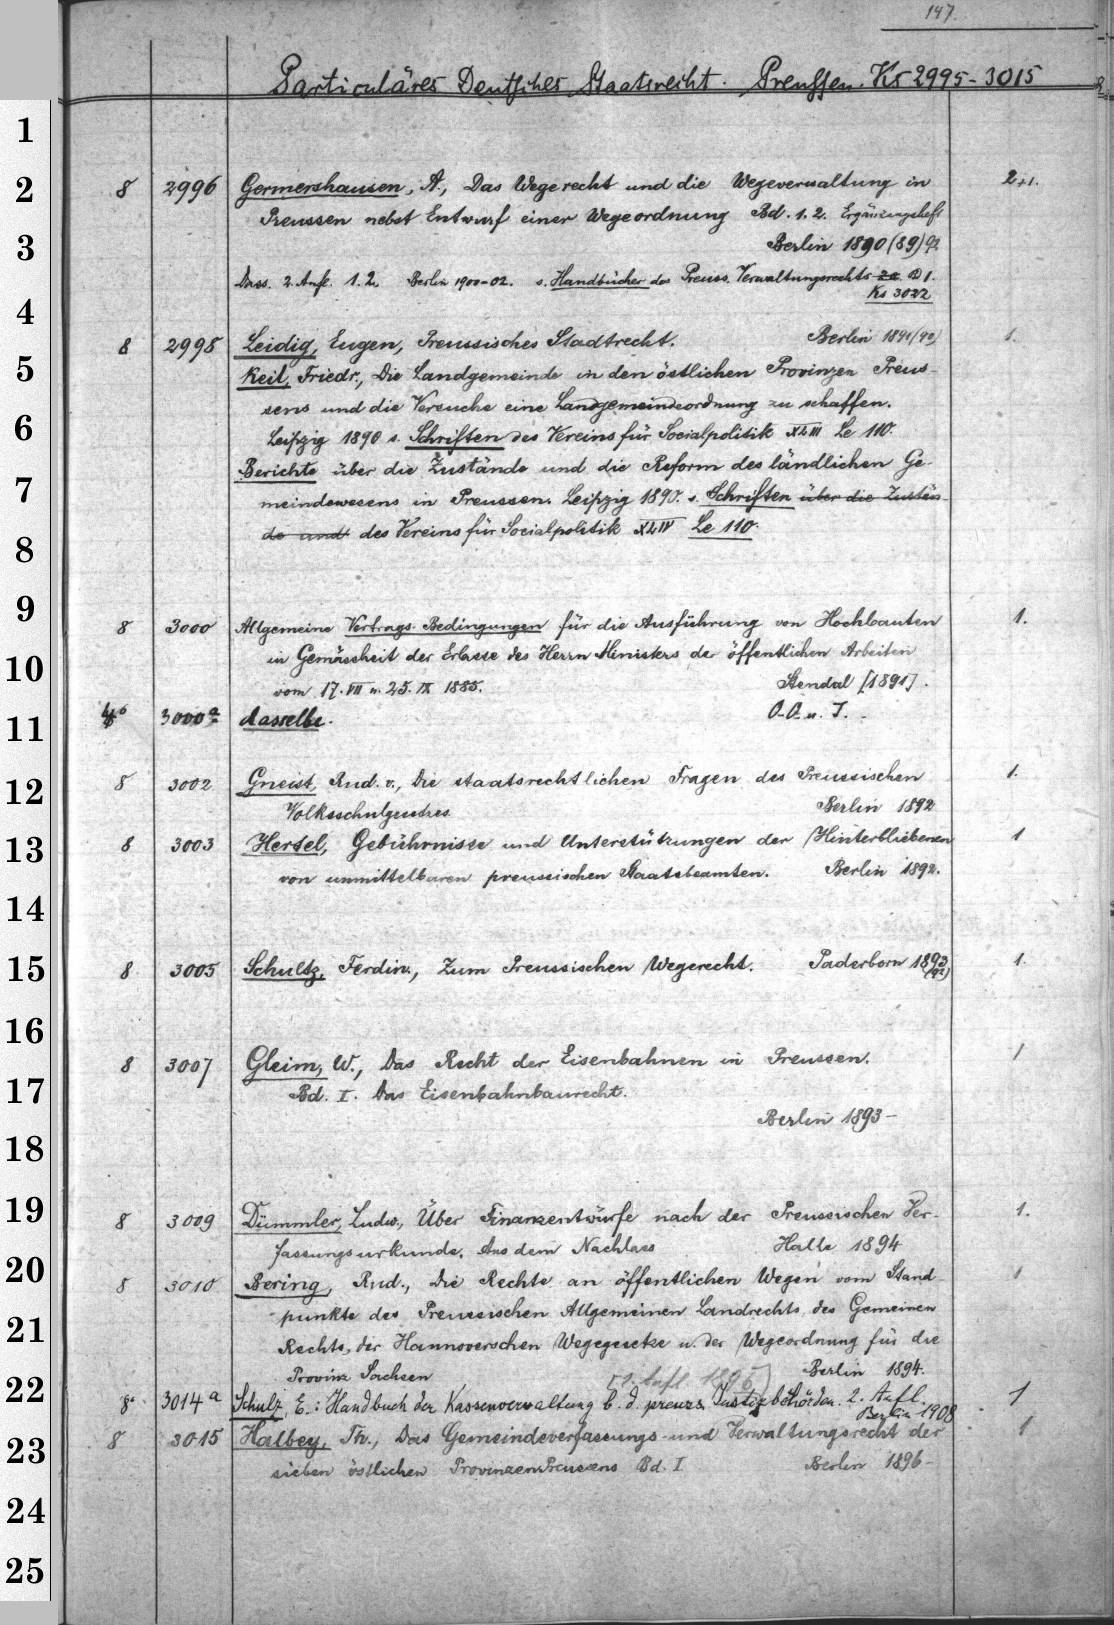 147.
Particuläres Deutsches Staatsrecht. Preussen. Ks 2995-3015
1
2
8 2996 Germershausen, A., Das Wegerecht und die Wegeverwaltung in 2+1.
Preussen nebst Entwurf einer Wegeordnung Bd. 1. 2. Ergänzungsheft
3
Berlin 1890 (89) 92
Dass. 2. Aufl. 1. 2. Berlin 1900-02. s. Handbücher des Preuss. Verwaltungsrechts D 1.
Ks 3022
4
8 2998 Leidig, Eugen, Preussisches Stadtrecht. Berlin 1891 (92) 1.
5
Keil, Friedr., Die Landgemeinde in den östlichen Provinzen Preus-
sens und die Versuche eine Landgemeindeordnung zu schaffen.
6
Leipzig 1890 s. Schriften des Vereins für Socialpolitik XLIII Le 110.
Berichte über die Zustände und die Reform des ländlichen Ge-
7
meindewesens in Preussen. Leipzig 1890. s. Schriften über die Zustän-
de und des Vereins für Socialpolitik XLIV Le 110.
8
9
8 3000 Allgemeine Vertrags-Bedingungen für die Ausführung von Hochbauten 1.
in Gemässheit der Erlasse des Herrn Ministers der öffentlichen Arbeiten
10
vom 17. VII u. 25. IX 1885. Stendal [1891].
4° 3000a dasselbe. O. O. u. J.
11
8 3002 Gneist, Rud. v., Die staatsrechtlichen Fragen des Preussischen 1.
12
Volksschulgesetzes Berlin 1892
8 3003 Hertel, Gebührnisse und Unterstützungen der Hinterbliebenen 1
13
von unmittelbaren preussischen Staatsbeamten. Berlin 1892.
14
15
8 3005 Schultz, Ferdin., Zum Preussischen Wegerecht. Paderborn 1893 1.
(92)
16
8 3007 Gleim, W., Das Recht der Eisenbahnen in Preussen. 1
17
Bd. I. Das Eisenbahnbaurecht.
Berlin 1893-
18
19
8 3009 Dümmler, Ludw., Über Finanzentwürfe nach der Preussischen Ver- 1.
fassungsurkunde. Aus dem Nachlass Halle 1894
20
8 3010 Bering, Rud., Die Rechte an öffentlichen Wegen vom Stand- 1
punkte des Preussischen Allgemeinen Landrechts, des Gemeinen
21
Rechts, der Hannoverschen Wegegesetze u. der Wegeordnung für die
Provinz Sachsen Berlin 1894.
[1. Aufl. 1895]
22
8° 3014a Schulz, E.: Handbuch der Kassenverwaltung b. d. preuss. Justizbehörden. 2. Aufl. 1
Berlin 1908
23
8 3015 Halbey, Th., Das Gemeindeverfassungs- und Verwaltungsrecht der 1
sieben östlichen Provinzen Preussens Bd. I Berlin 1896-
24
25